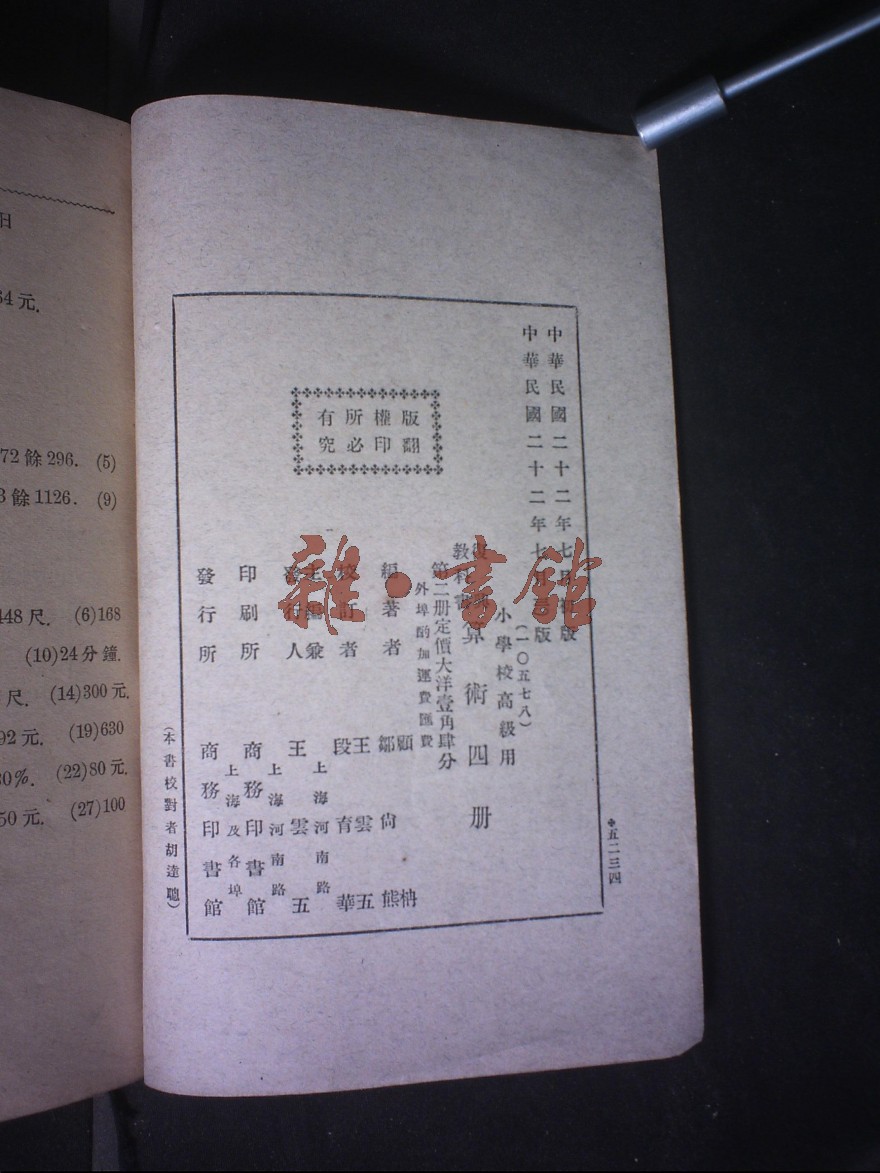 中華民國二十二年七月初版
中華民國二十二年七月 版
(一〇五七八)
小學校高級用
復興
教科書
算術四册
第二册定價大洋壹角肆分
外埠酌加運費匯費
編著者
顧枏
鄒尙熊
校訂者
王雲五
段育華
主編兼
發行人
上海河南路
王雲五
印刷所
上海河南路
商務印書館
發行所
上海及各埠
商務印書館
版權所有
翻印必究
(本書校對者胡達聰)
五二三四
日
54元.
72餘296. (5)
餘1126. (9)
448尺. (6)168
(10)24分鐘.
尺. (14)300元.
92元. (19)630
30%. (22)80元.
50元. (27)100
雜·書館